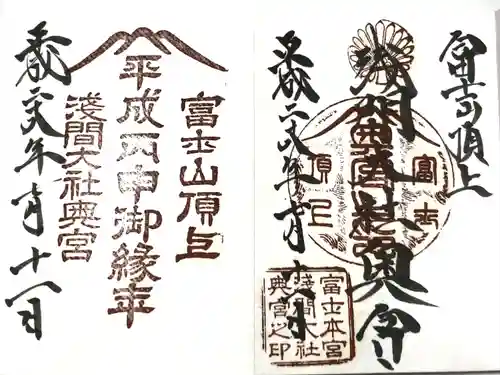 富士山頂上
平成丙申御縁年
淺間大社奥宮
平成二八年七月十八日
富士頂上
浅間大社奥宮
平成二八年七月十八日
富士
頂上
富士本宮
淺間大社
奥宮之印